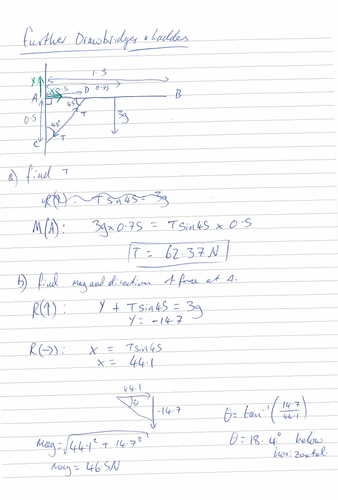 Further Drawbridges & Ladders
1.5
Y
0.75
X 0.5
A
D
B
45°
T
0.5
3g
45°
T
C
a) find T
R(↑): T sin45 = 3g
M(A): 3g x 0.75 = T sin 45 x 0.5
T = 62.37 N
b) find mag and direction of force at A.
R(↑): Y + T sin 45 = 3g
Y = -14.7
R(→): x = T sin 45
x = 44.1
44.1
θ
-14.7
θ = tan⁻¹ (14.7/44.1)
mag = √44.1² + 14.7²
θ = 18.4° below horizontal
mag = 46.5N